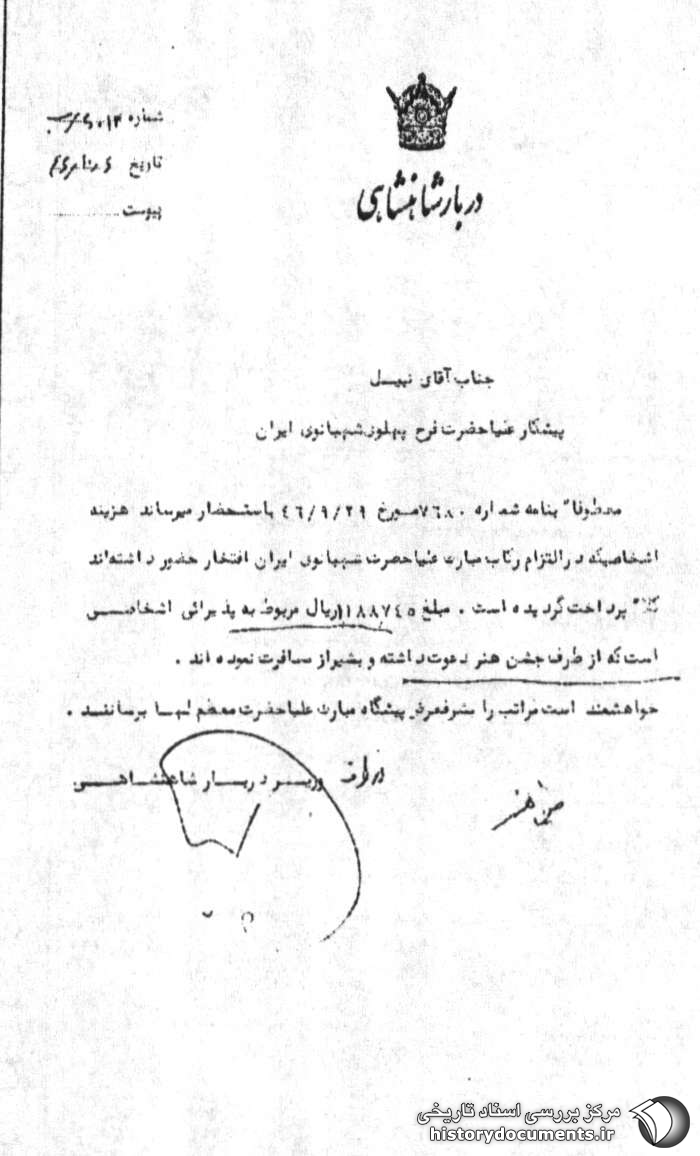 دربار شاهنشاهی
شماره
تاریخ
پیوست
جناب آقای نهبل
پیشکار علیاحضرت فرح پهلوی شهبانوی ایران
معطوفاً بنامه شماره ۷۶۸۰ مورخ ۴۶/۹/۲۹ باستحضار میرساند هزینه
اشخاصیکه درالتزام رکاب مبارک علیاحضرت شهبانوی ایران افتخار حضور داشته‌اند
کلاً پرداخت گردیده است . مبلغ ۱۱۸۸۷۴۵ ریال مربوط به پذیرائی اشخاصی
است که از طرف جشن هنر دعوت داشته و بشیراز مسافرت نموده اند .
خواهشمند است مراتب را بشرفعرض پیشگاه مبارک علیاحضرت معظم لها برسانند .
از طرف وزیر دربار شاهنشاهی
جشن هنر
مرکز بررسی اسناد تاریخی
historydocuments.ir